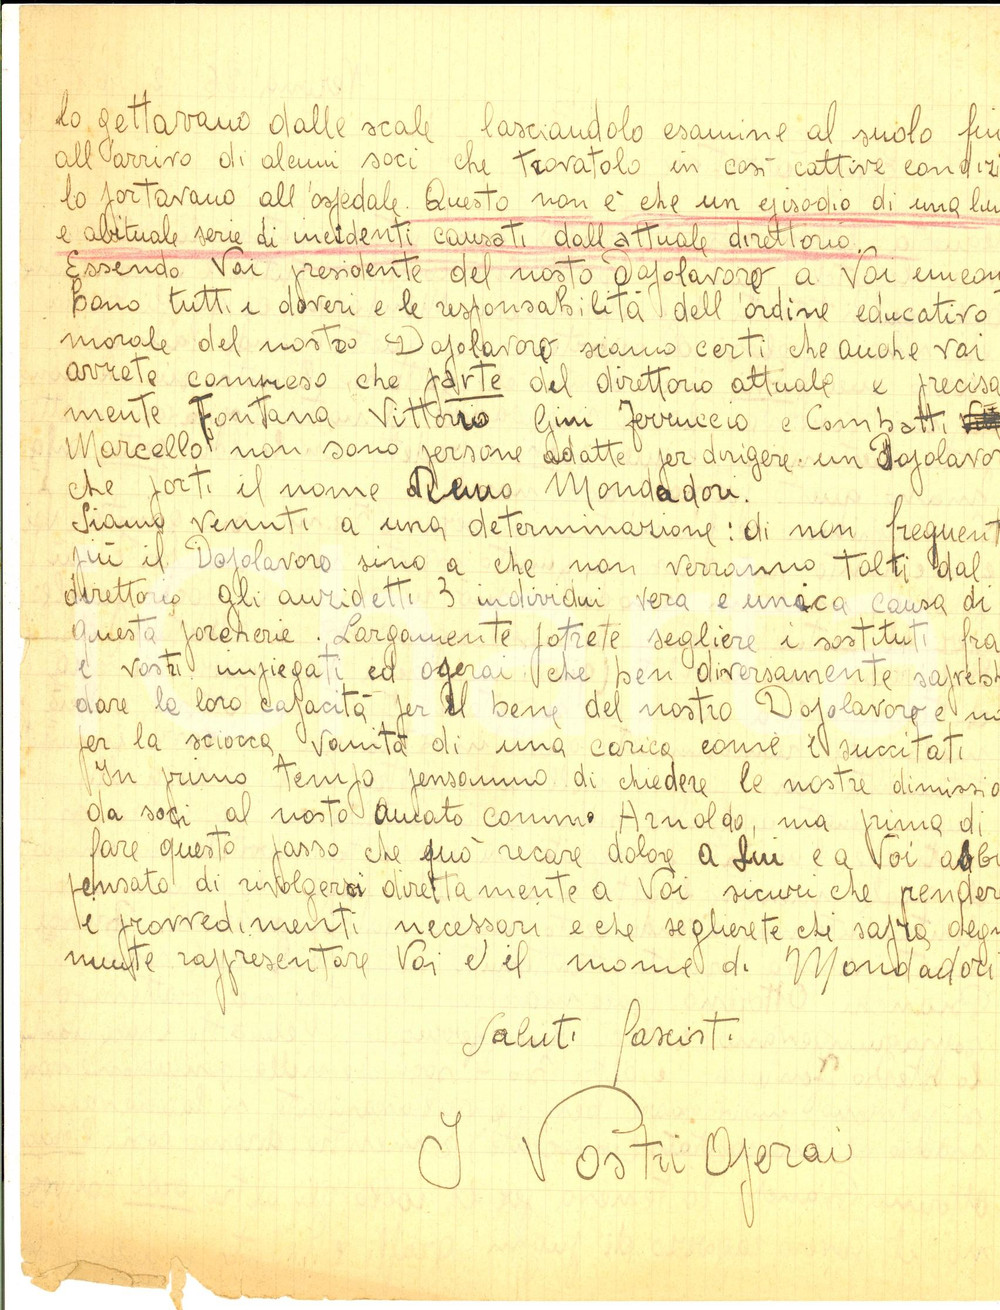 lo gettavano dalle scale lasciandolo esamine al suolo fin
all'arrivo di alcuni soci che trovatolo in così cattive condizi
lo portavano all'ospedale. Questo non è che un episodio di una lun
e abituale serie di incidenti causati dall'attuale direttorio.
Essendo Voi presidente del nosto Dopolavoro a Voi incom
bono tutti i doveri e le responsabilità dell'ordine educativo
morale del nostro Dopolavoro siamo certi che anche voi
avrete compreso che parte del direttorio attuale e precisa
mente Fontana Vittorio Gini Ferruccio e Combatti
Marcello non sono persone adatte per dirigere un Dopolavor
che porti il nome Remo Mondadori.
Siamo venuti a una determinazione: di non frequent
più il Dopolavoro sino a che non verranno tolti dal
direttorio gli anzidetti 3 individui vera e unica causa di
questa porcherie. Largamente potrete segliere i sostituti fra
i vostri impiegati ed operai che ben diversamente saprebb
dare le loro capacità per il bene del nostro Dopolavoro e no
per la sciocca vanità di una carica come i succitati
In primo tempo pensammo di chiedere le nostre dimissio
da soci al nosto amato comm. Arnoldo, ma prima di
fare questo passo che può recare dolore a Lui e a Voi abbi
pensato di rivolgerci direttamente a Voi sicuri che prender
i provvedimenti necessari e che seglierete chi saprà degn
mente rappresentare Voi e il nome di Mondadori
Saluti fascisti
I Vostri Operai